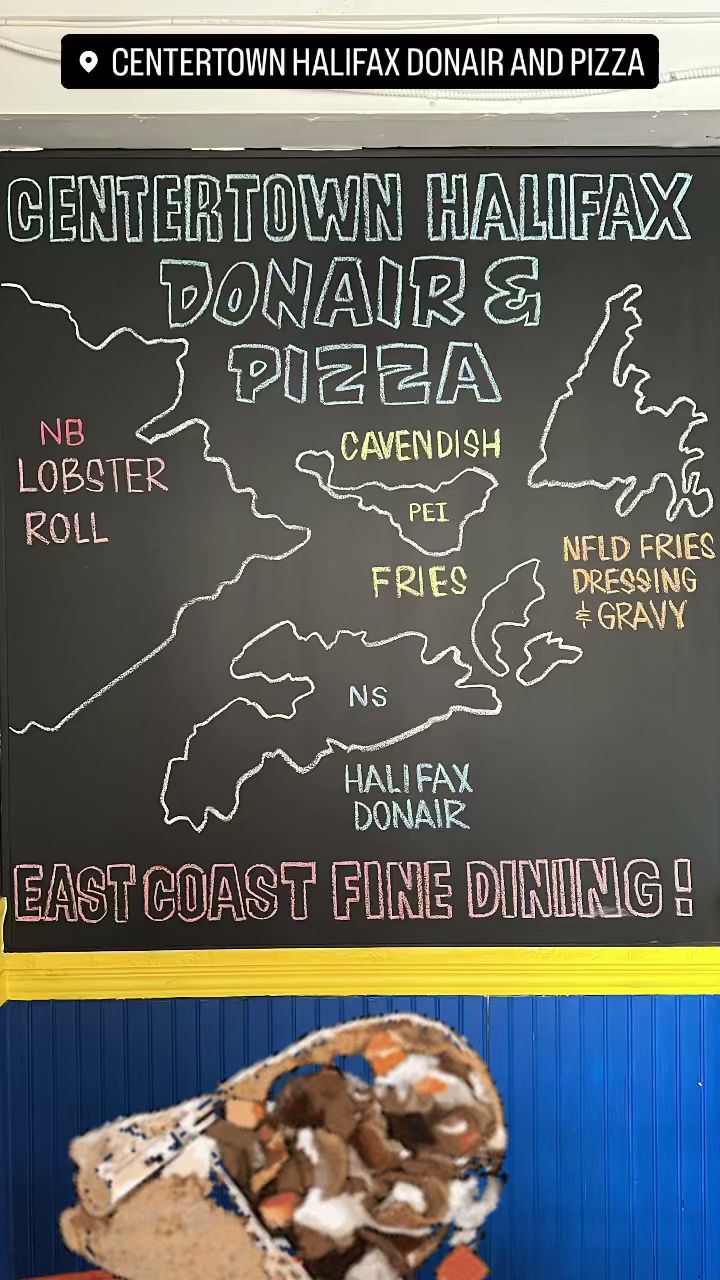 CENTERTOWN HALIFAX DONAIR AND PIZZA
CENTERTOWN HALIFAX
DONAIR &
PIZZA
NB
LOBSTER
ROLL
CAVENDISH
PEI
FRIES
NFLD FRIES
DRESSING
& GRAVY
NS
HALIFAX
DONAIR
EAST COAST FINE DINING!